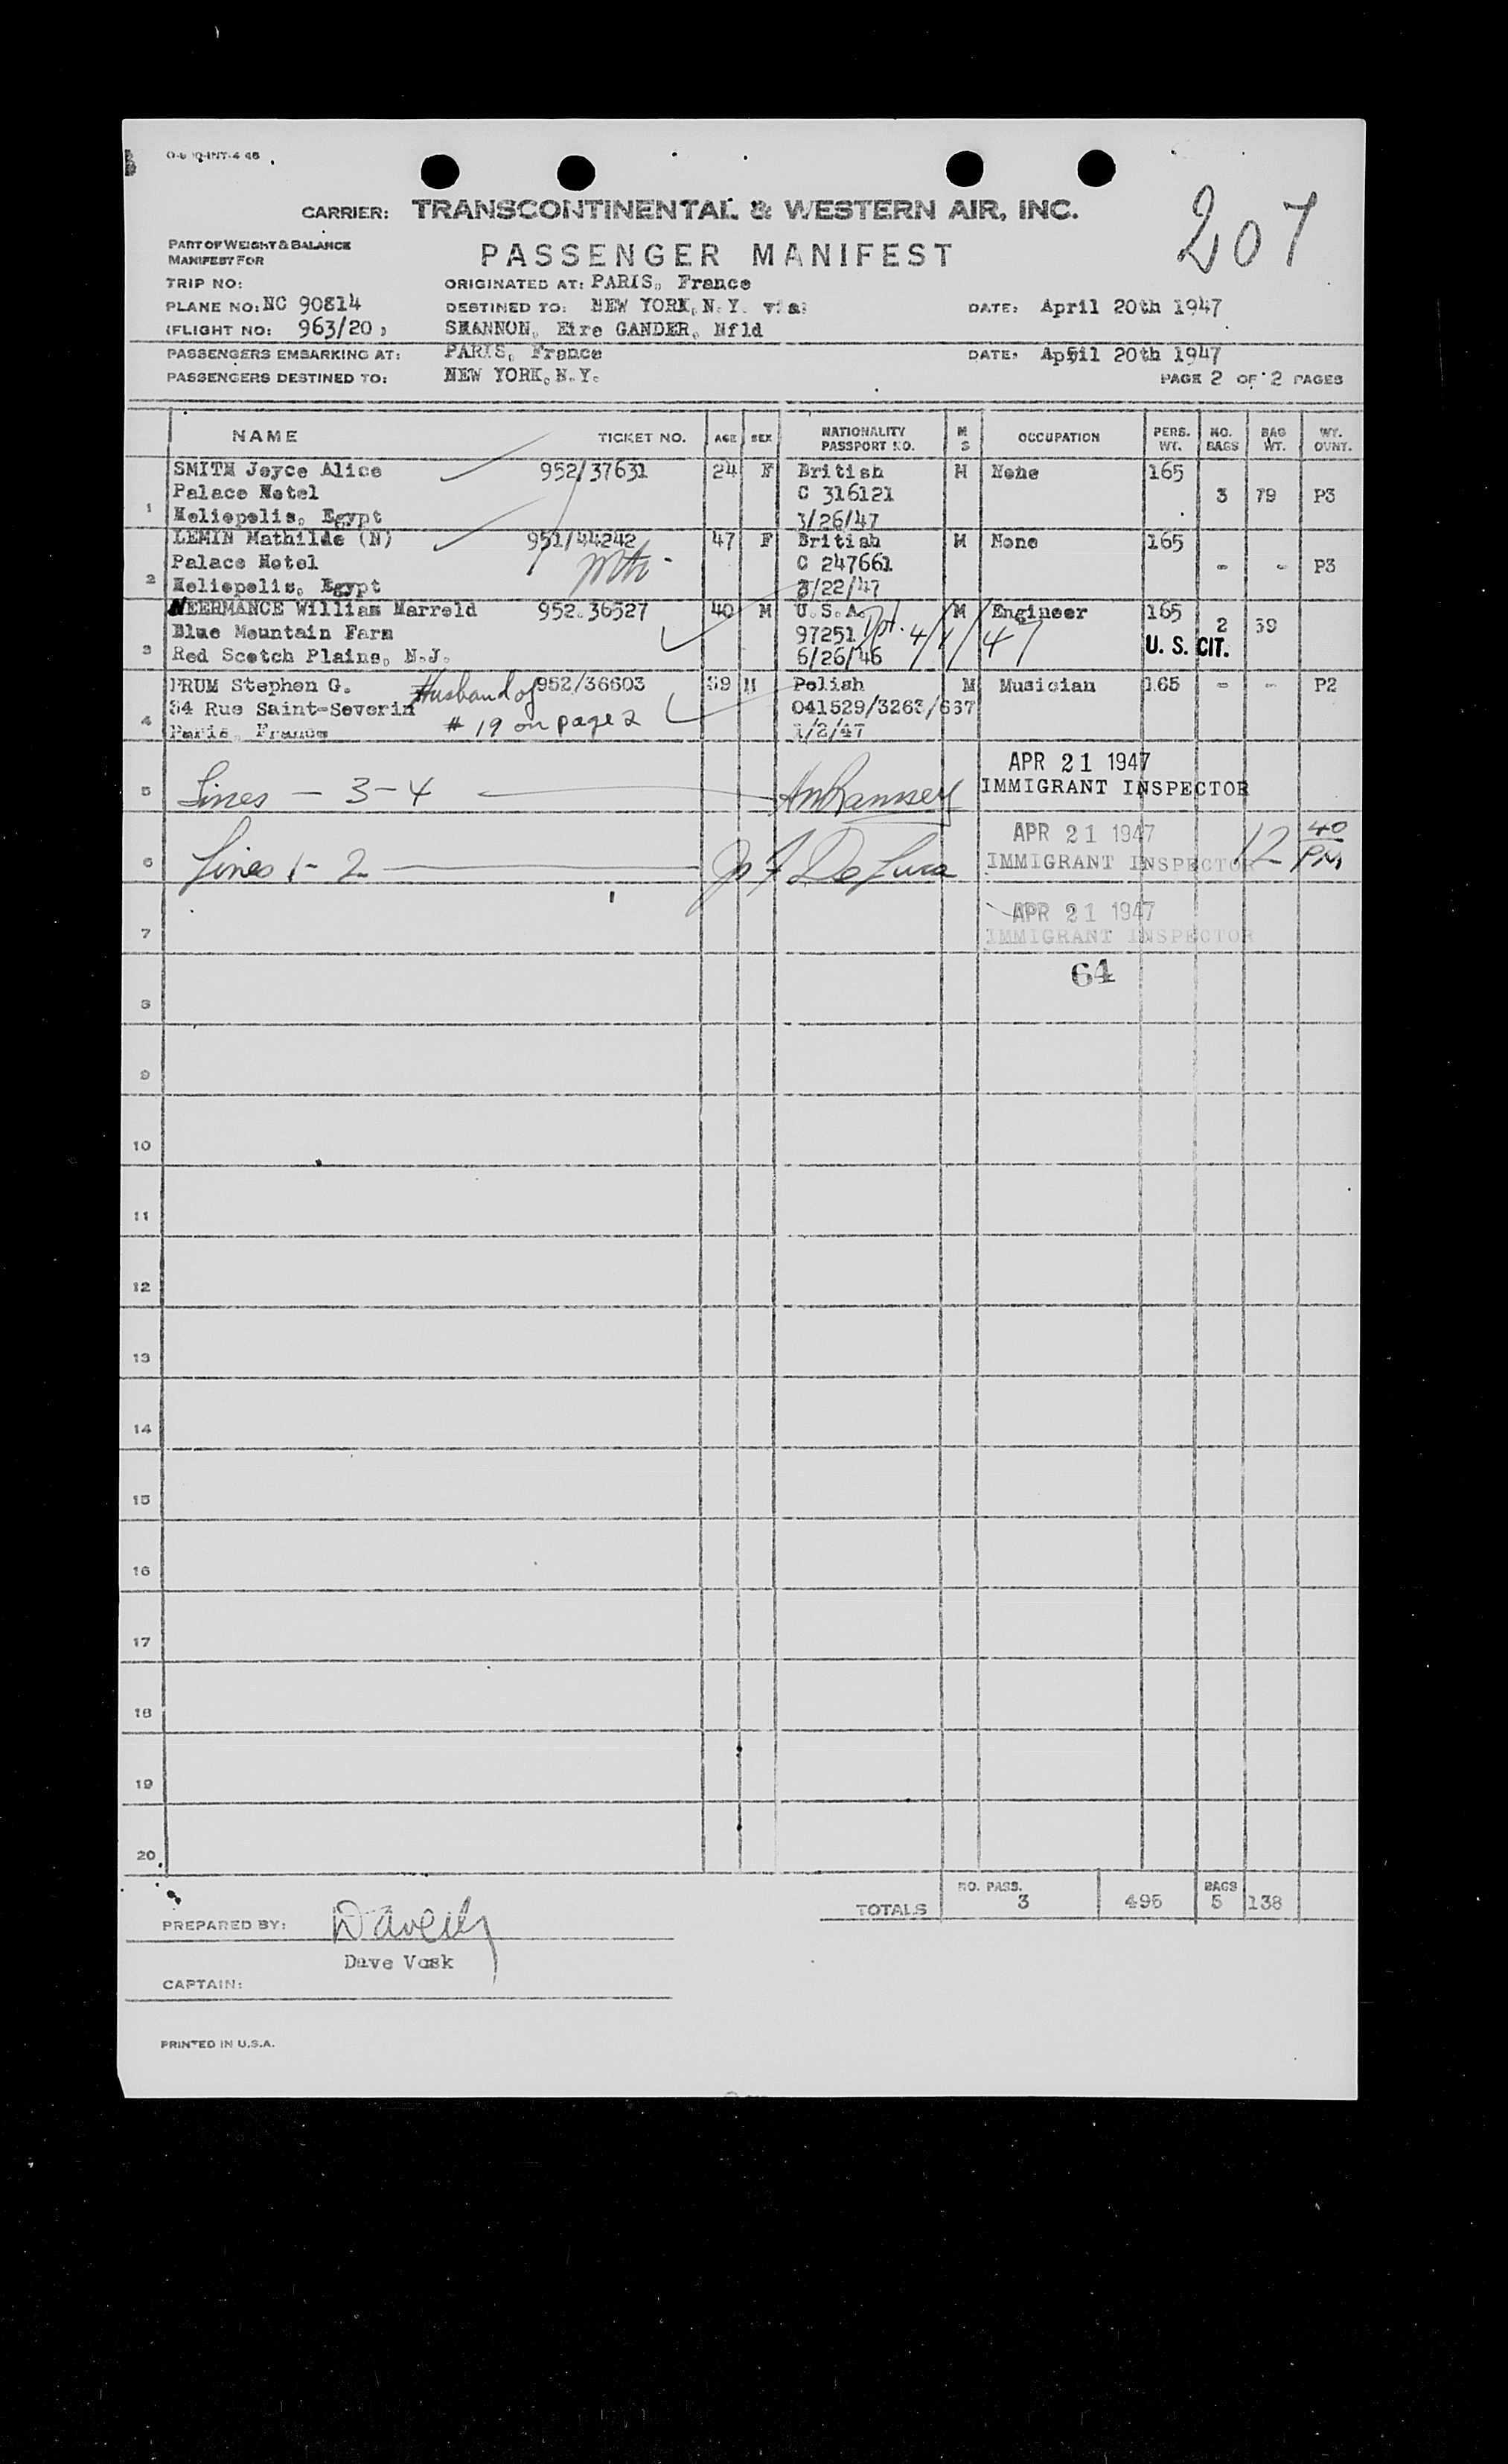 CARRIER: TRANSCONTINENTAL & WESTERN AIR, INC.
207
PART OF WEIGHT & BALANCE
MANIFEST FOR
PASSENGER MANIFEST
TRIP NO: ORIGINATED AT: PARIS, France
PLANE NO: NC 90814 DESTINED TO: NEW YORK, N.Y. via: DATE: April 20th 1947
(FLIGHT NO: 963/20) SHANNON, Eire GANDER, Nfld
PASSENGERS EMBARKING AT: PARIS, France DATE: April 20th 1947
PASSENGERS DESTINED TO: NEW YORK, N.Y. PAGE 2 OF 2 PAGES
NAME TICKET NO. AGE SEX NATIONALITY PASSPORT NO. M S OCCUPATION PERS. WT. NO. BAGS BAG WT. WY. CUNT.
1 SMITH Joyce Alice 952/37631 24 F British M None 165
Palace Hotel C 316121 3 79 P3
Heliopolis, Egypt 3/26/47
2 LEMIN Mathilde (N) 951/44242 47 F British M None 165
Palace Hotel C 247661 - - P3
Heliopolis, Egypt 3/22/47
3 HEERMANCE William Harrold 952.36527 40 M U.S.A. M Engineer 165
Blue Mountain Farm 97251 Dpt. 4/1/47 2 59
Red Scotch Plains, N.J. 6/26/46 U. S. CIT.
4 FRUM Stephen G. Husband of 952/36603 39 M Polish M Musician 165 - - P2
34 Rue Saint-Severin # 19 on page 2 041529/3263/637
Paris, France 1/2/47
5 Lines - 3-4 APR 21 1947
IMMIGRANT INSPECTOR
6 Lines 1-2 Jo F De Luca APR 21 1947 12 40 PM
IMMIGRANT INSPECTOR
7 APR 21 1947
IMMIGRANT INSPECTOR
8 64
9
10
11
12
13
14
15
16
17
18
19
20
TOTALS NO. PASS. 3 495 BAGS 5 138
PREPARED BY:
Dave Vosk
CAPTAIN:
PRINTED IN U.S.A.